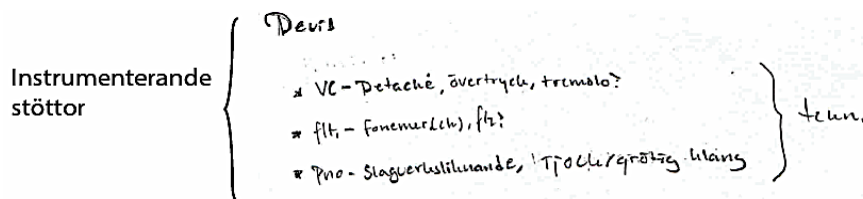 Devils
Instrumenterande
stöttor
* Vc - Detaché, övertryck, tremolo?
* flt, - fonemur(ch), flz?
* Pno - Slagverksliknande, Tjock/grötig klang
tekn.